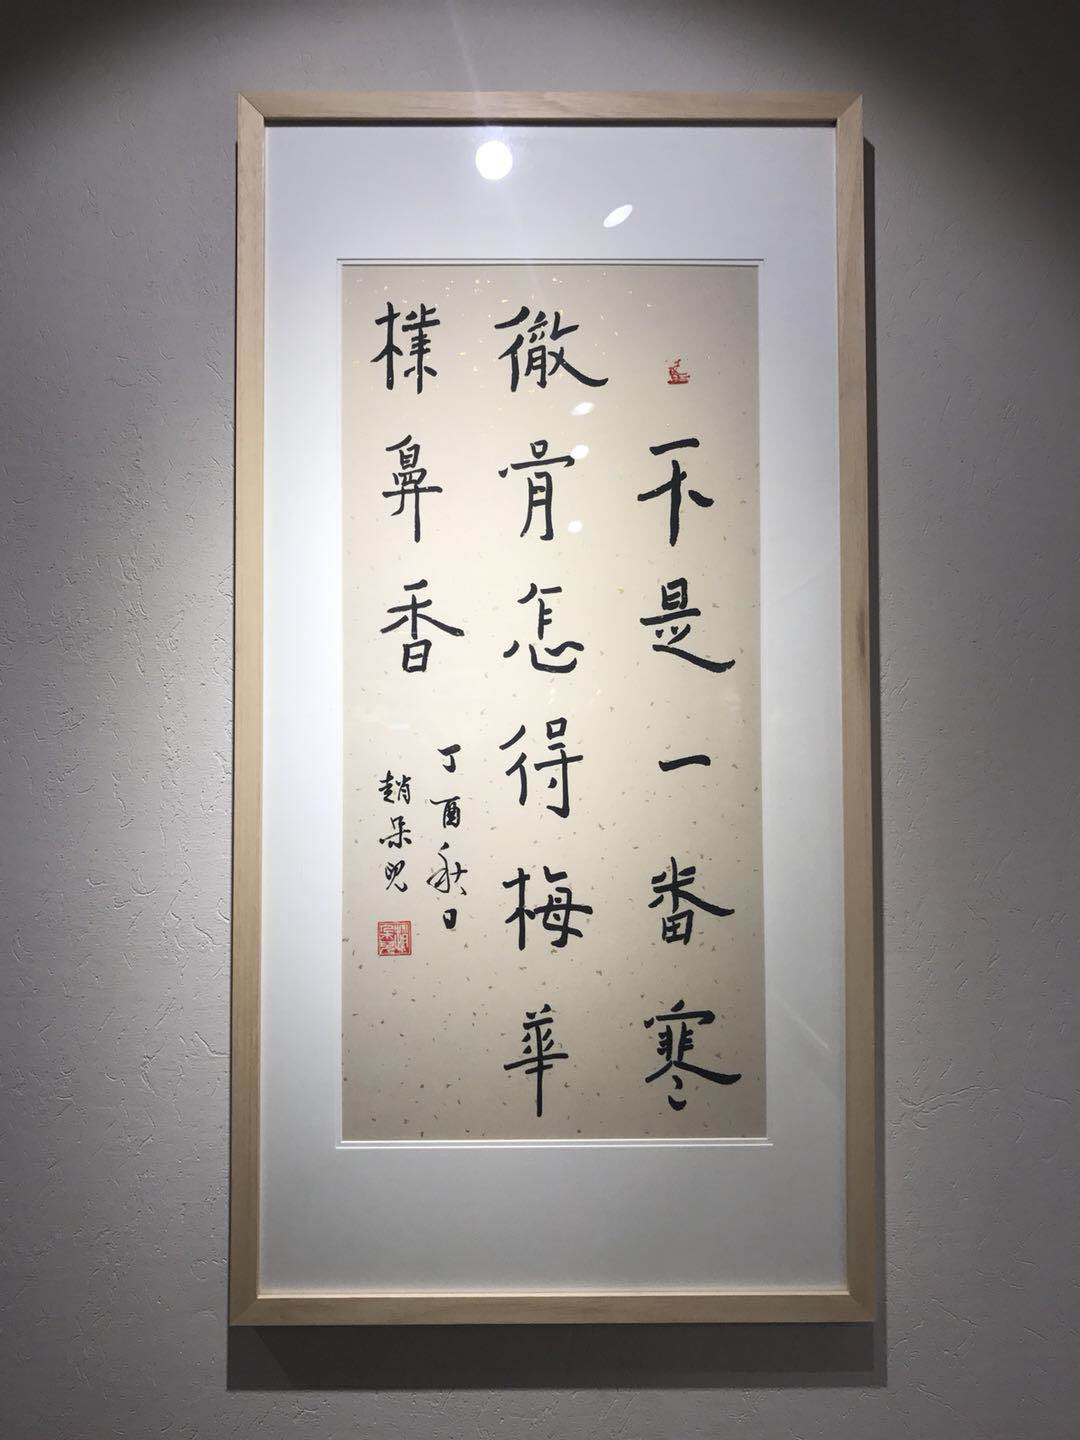 不是一番寒
徹骨怎得梅華
樸鼻香
丁酉秋日
趙朵兒